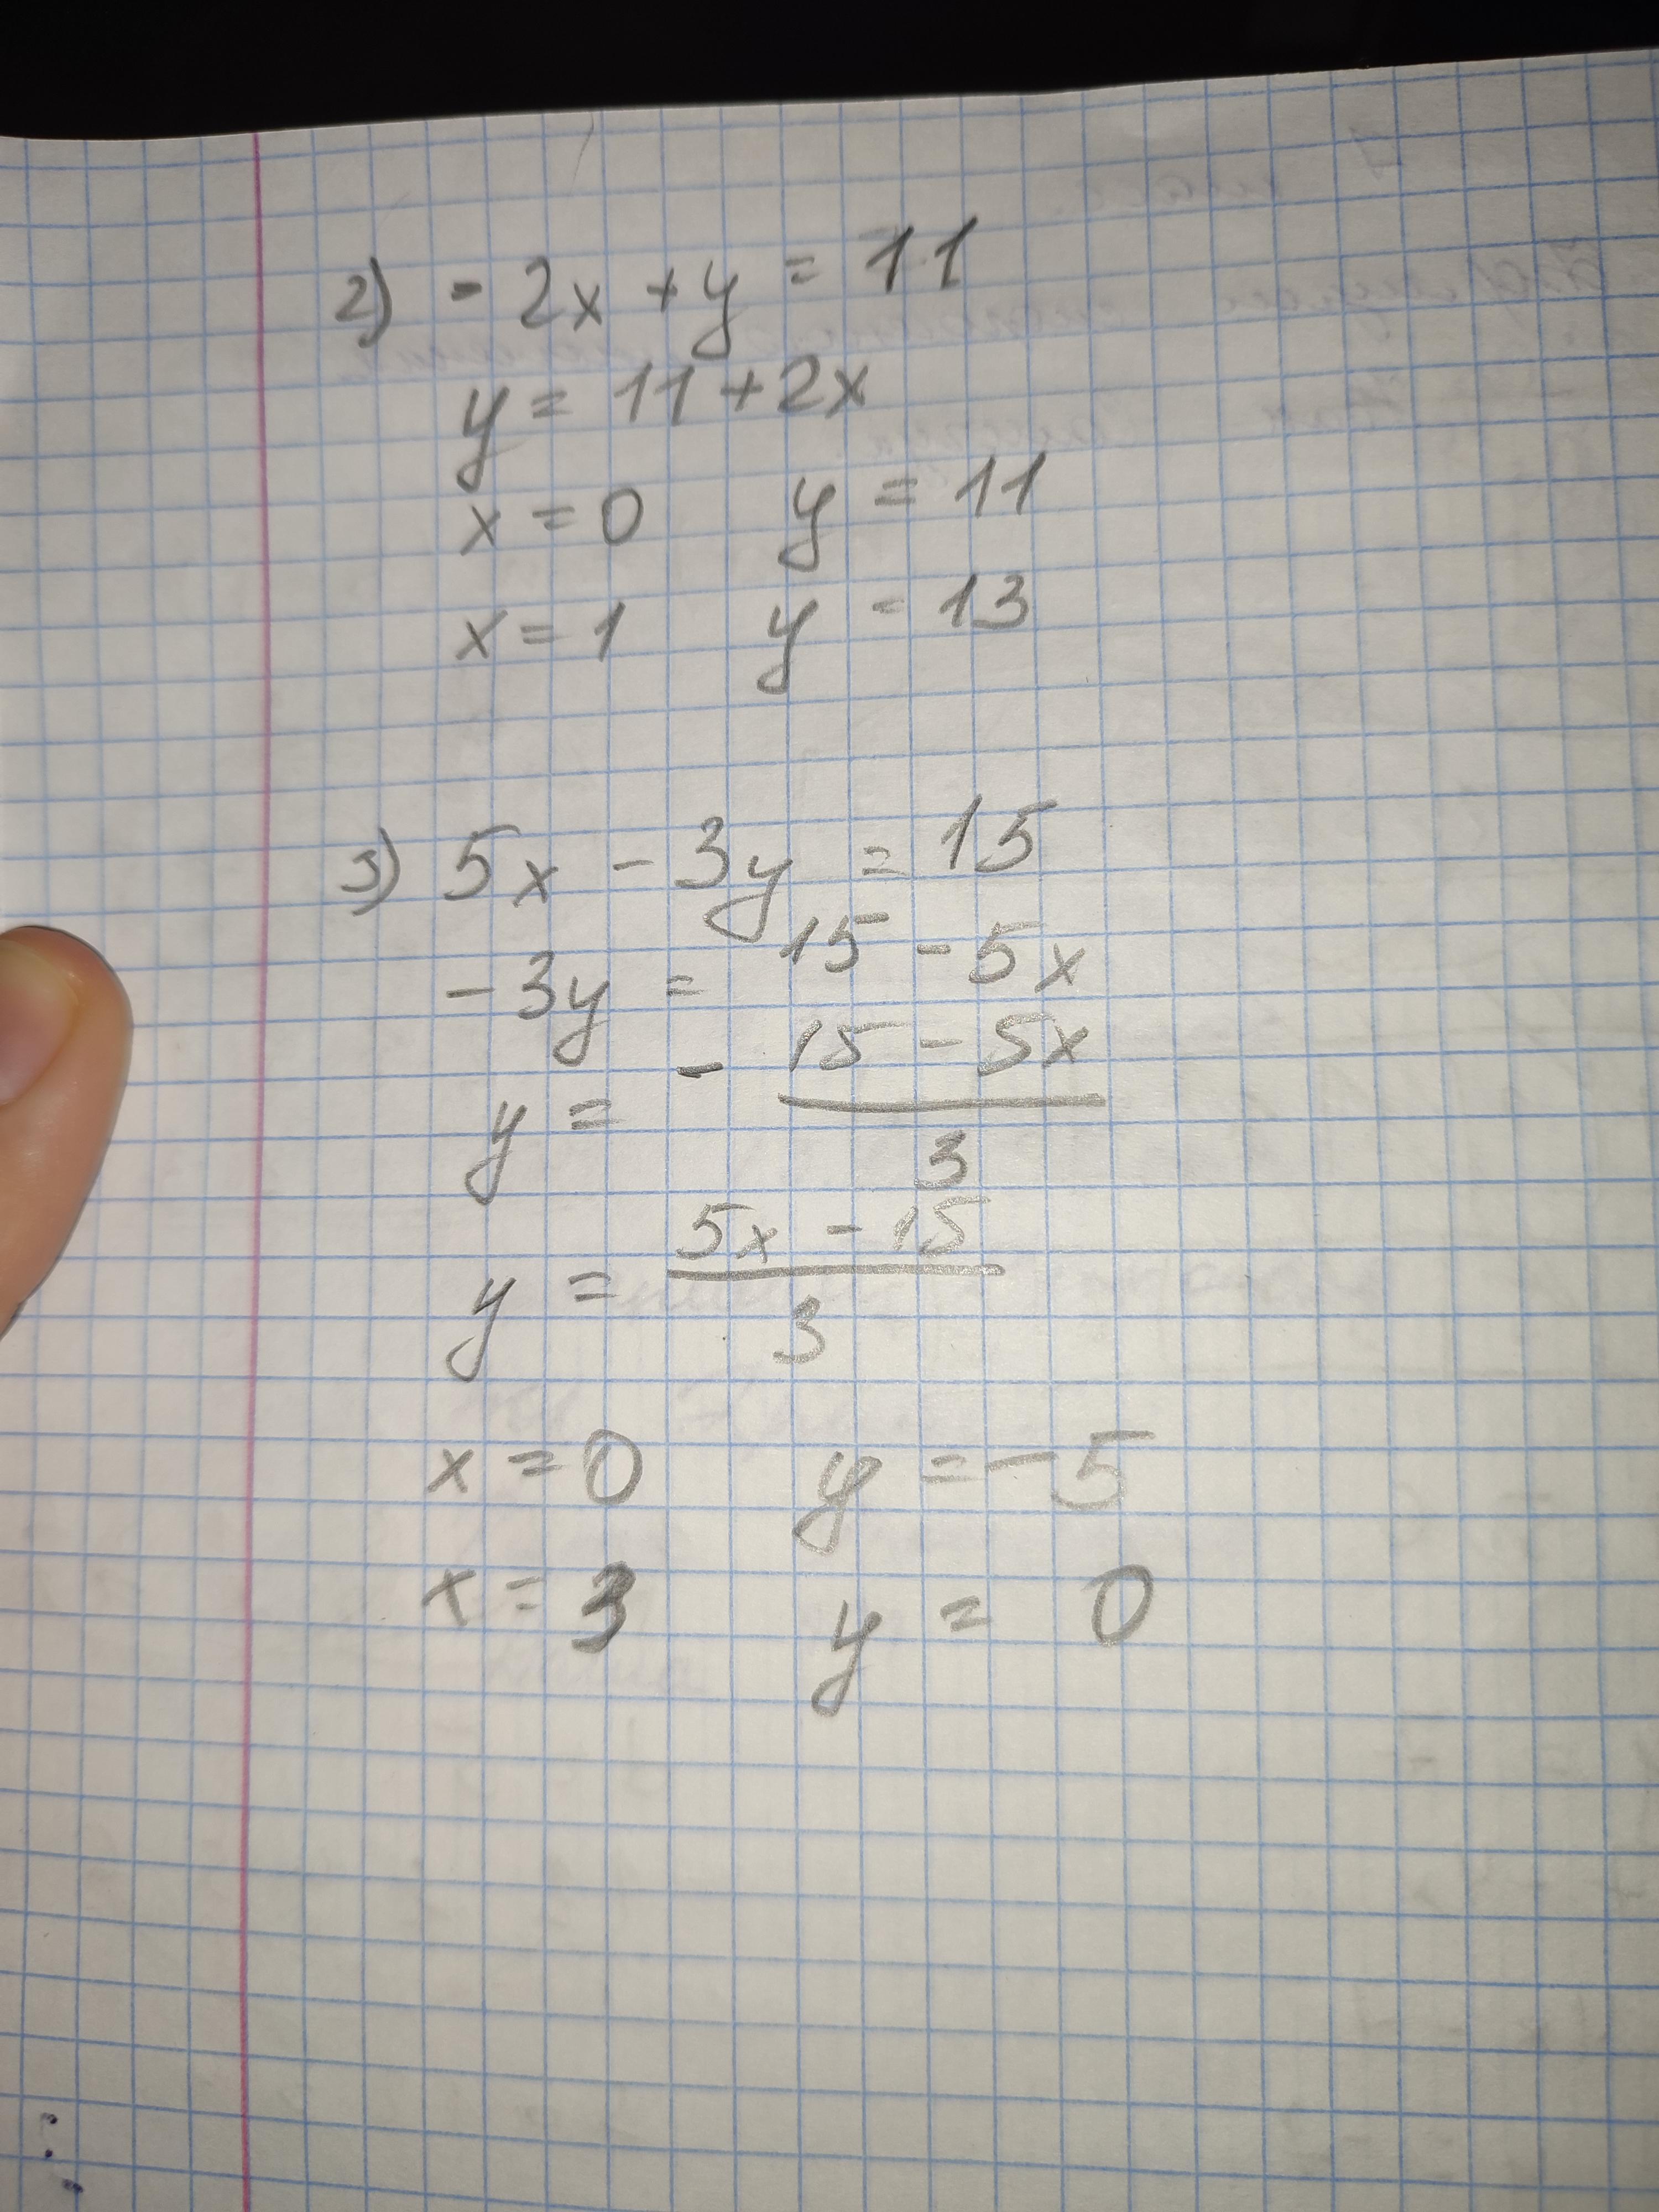 2) - 2x + y = 11
y = 11 + 2x
x = 0 y = 11
x = 1 y = 13
3) 5x - 3y = 15
-3y = 15 - 5x
y = - (15 - 5x)/3
y = (5x - 15)/3
x = 0 y = -5
x = 3 y = 0